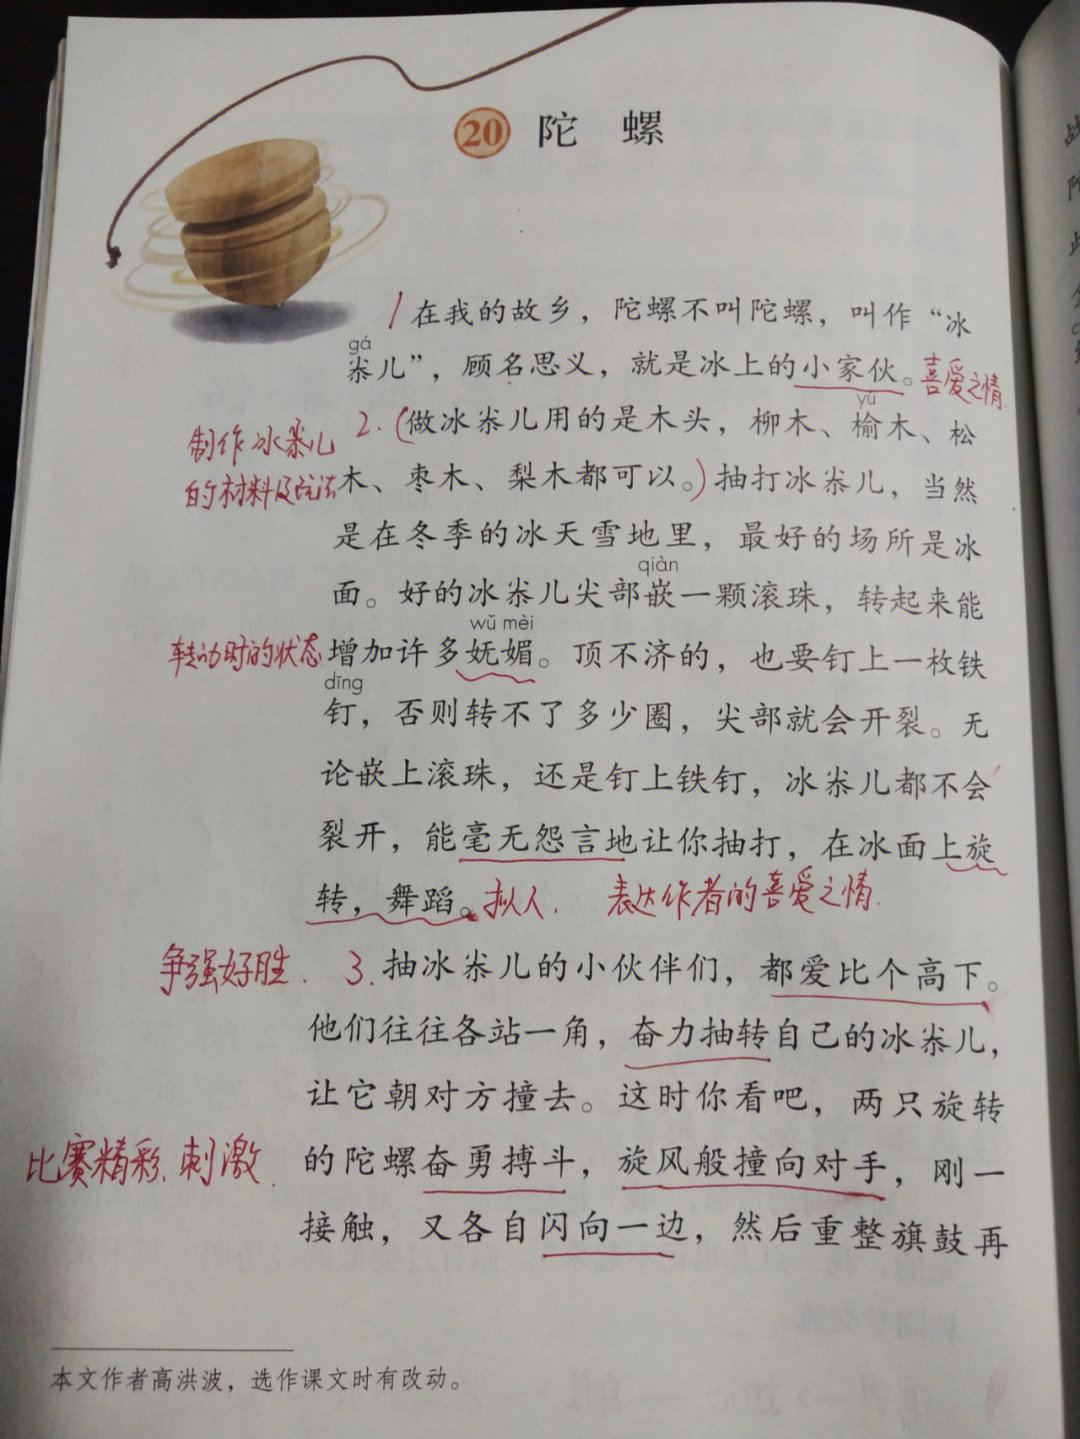 20 陀 螺
1在我的故乡，陀螺不叫陀螺，叫作“冰
gá
尜儿”，顾名思义，就是冰上的小家伙。喜爱之情.
yú
制作冰尜儿 2.(做冰尜儿用的是木头，柳木、榆木、松
的材料及玩法木、枣木、梨木都可以。)抽打冰尜儿，当然
是在冬季的冰天雪地里，最好的场所是冰
qiàn
面。好的冰尜儿尖部嵌一颗滚珠，转起来能
wǔ mèi
转动时的状态 增加许多妩媚。顶不济的，也要钉上一枚铁
dīng
钉，否则转不了多少圈，尖部就会开裂。无
论嵌上滚珠，还是钉上铁钉，冰尜儿都不会
裂开，能毫无怨言地让你抽打，在冰面上旋
转，舞蹈。拟人. 表达作者的喜爱之情.
争强好胜. 3.抽冰尜儿的小伙伴们，都爱比个高下。
他们往往各站一角，奋力抽转自己的冰尜儿，
让它朝对方撞去。这时你看吧，两只旋转
比赛精彩、刺激. 的陀螺奋勇搏斗，旋风般撞向对手，刚一
接触，又各自闪向一边，然后重整旗鼓再
本文作者高洪波，选作课文时有改动。